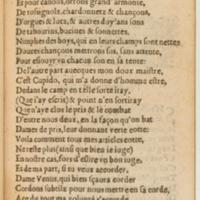 Et pour canons, orrons grand' armonie,
De rossignols, chardonnetz & chançons,
D'orgues & lucz, & autres dux sons
De tabourins, bucines & sonnettes.
Nimphes des boys, qui en leurs champs sont nettes
Douces chançons mettrons sus, sans attente,
Pour esiouyr va chacun son en sa tente:
De l'autre part auecques mon doux maistre,
C'est Cupido, qui m'a donné d'honneur estre,
Dedans le camp en telle forte siray,
(Que i'ay escrit) & point n'en sortiray
Que n'aye eu le pris & le combat
D'entre nous deux, en la façon qu'on bat
Dames de pris, leur donnant verte cotte:
Voila comment tous mes articles cotte,
Ne reste plus (ainsi que bien ie iuge)
En nostre cas, fors d'eslire vn bon iuge,
Et de ma part, si tu veux accorder,
Dame Venus, qui bien sçaura corder
Cordons subtilz pour nous mettre en sa corde,